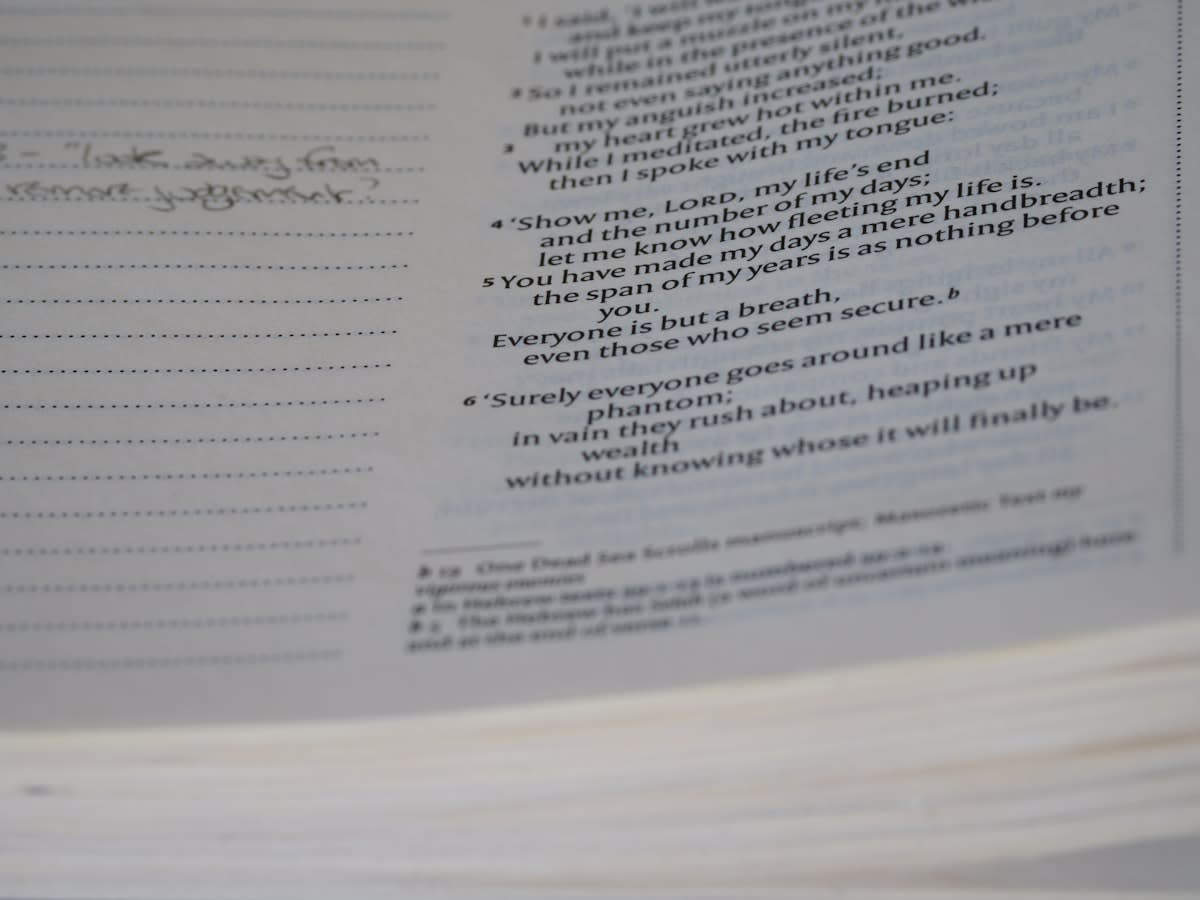 – "look away from
remove judgement?
1 I said, 'I will
and keep my tongue
I will put a muzzle on my
while in the presence of the
2 So I remained utterly silent,
not even saying anything good.
But my anguish increased;
3 my heart grew hot within me.
While I meditated, the fire burned;
then I spoke with my tongue:
4 ‘Show me, LORD, my life’s end
and the number of my days;
let me know how fleeting my life is.
5 You have made my days a mere handbreadth;
the span of my years is as nothing before
you.
Everyone is but a breath,
even those who seem secure. b
6 ‘Surely everyone goes around like a mere
phantom;
in vain they rush about, heaping up
wealth
without knowing whose it will finally be.
b 19 One Dead Sea Scrolls manuscript; Masoretic Text my
vigorous enemies
a In Hebrew texts 39:1-13 is numbered 39:2-14.
b 5 The Hebrew has Selah (a word of uncertain meaning) here
and at the end of verse 11.